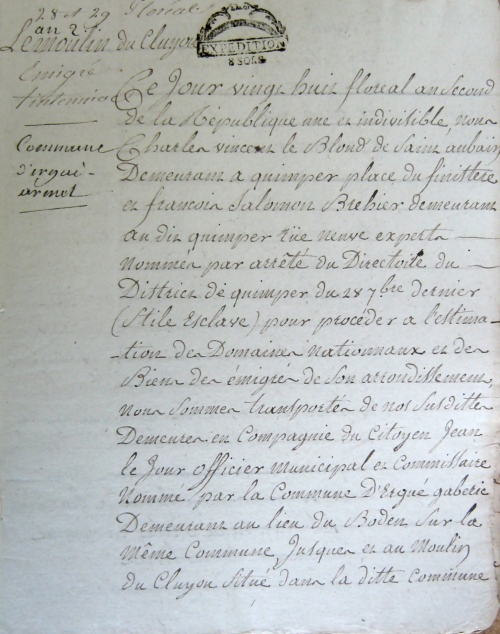 28 et 29 floreal
an 2
Le moulin du Cluyou
Emigré
EXPEDITION
8 SOLS
Commune
d'ergué-
armel
Ce Jour vingt huit floreal an Second
de la République une et indivisible, nous
Charles vincent le Blond de Saint aubain
Demeurant a quimper place du finistere
et francois Salomon Brehier demeurant
au dit quimper rüe neuve experts
nommés par arrêté du Directoire du
District de quimper du 28 7bre dernier
(Stile Esclave) pour procéder a l'estima-
-tion des Domaines nationnaux et des
Biens des émigrés de Son arrondissement,
nous Sommes transportés de nos Susdittes
Demeures en Compagnie du Citoyen Jean
le Jour officier municipal et Commissaire
Nommé par la Commune D'Ergué gaberic
Demeurant au lieu du Boden Sur la
même Commune, Jusques et au Moulin
du Cluyou Situé dans la ditte Commune